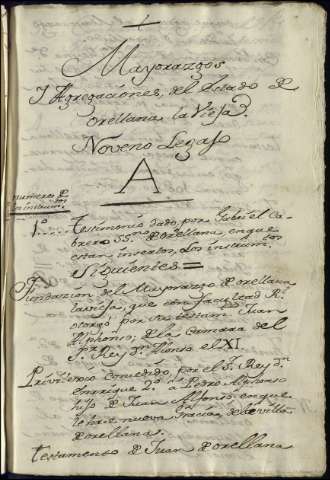 Mayorazgos
Y Agregaciones, del Estado de
orellana la Vieja.
Noveno Legajo
A
numeros de
los instrumtos
1º... Testimonio dado, por Gabriel Ca-
brera SSno. de orellana, en que
estan insertos, Los instrumtos
Siguientes =
Fundazion del Mayorazgo de orellana
la vieja, que con facultad Rl.
otorgo por su testamto Juan
Alphonso; de la Camara del
Sr. Rey dn. Alonso el XI.
Privilegio concedido, por el Sr. Rey dn.
Enrrique 2º. a Pedro Alphonso
hijo de Juan Alfonso, en que
le haze nueva gracia, de la villa
de orellana.
testamento de Juan de orellana